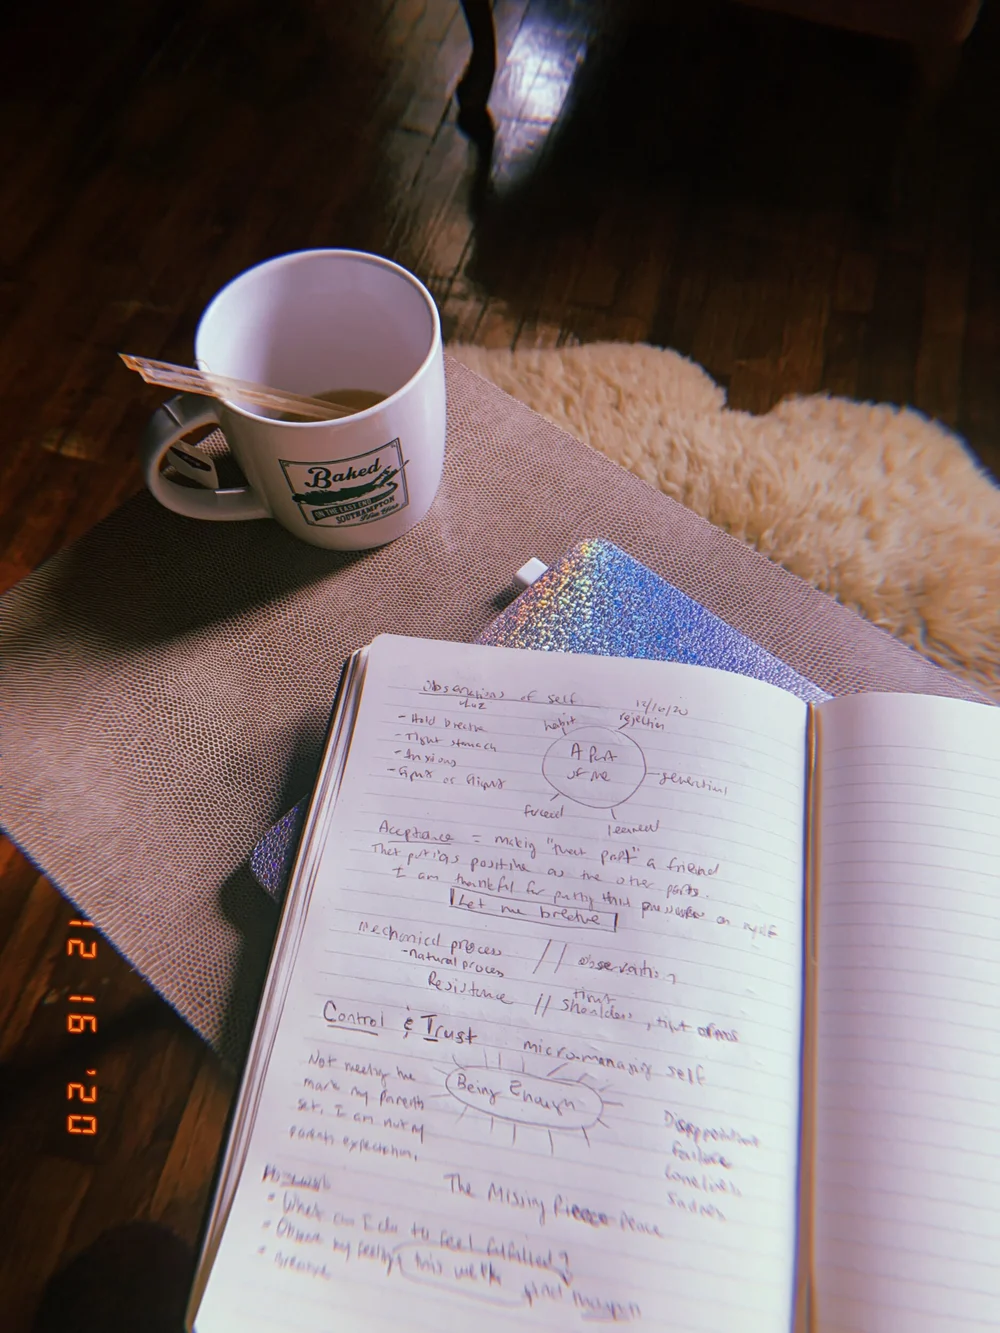 Baked
ON THE EAST END
SOUTHAMPTON
Observations of self
12/16/20
- Hold Breathe
- Tight stomach
- Anxious
- Fight or flight
habit
rejection
A Part
of me
generational
forced
learned
Acceptance = making "that part" a friend
That part is positive as the other parts.
I am thankful for putting this pressure on myself
Let me breathe
Mechanical process // observation
- natural process
Resistance // tight shoulders, tight arms
Control & Trust
micro-managing self
Being Enough
Not meeting the
mark my parents
set. I am not my
parents expectation.
Disappointment
failure
loneliness
sadness
The Missing Piece Peace
Homework
• What can I do to feel fulfilled?
• Observe my feelings this week
• breathe
12 16 '20